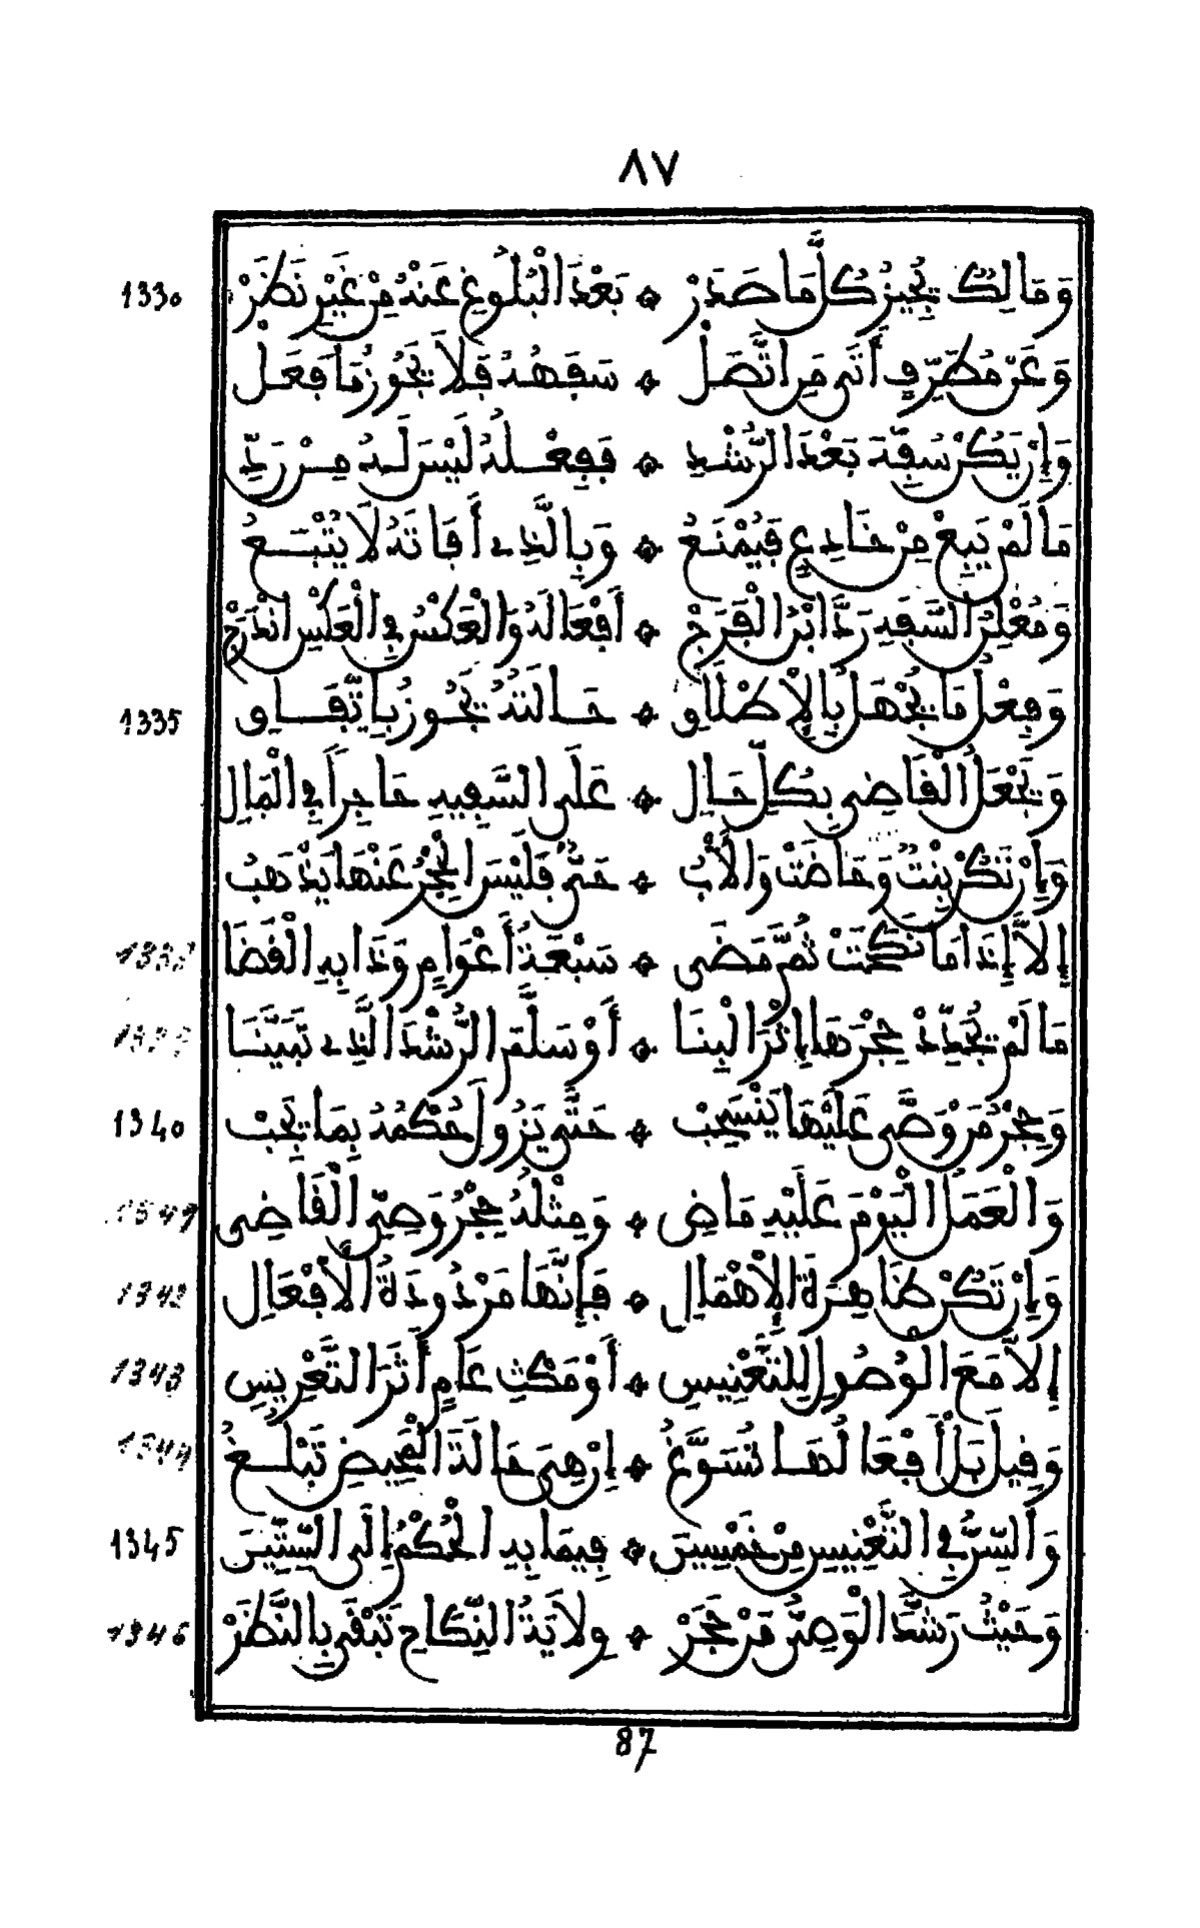 ٨٧
1330 وَمَالِكٌ يُجِيزُ كُلَّ مَا صَدَرْ ۞ بَعْدَ الْبُلُوغِ عَنْهُ مِنْ غَيْرِ نَظَرْ
وَعَنْ مُطَرِّفٍ أَتَى مَنِ اتَّصَلْ ۞ سَفَهُهُ فَلَا يَجُوزُ مَا فَعَلْ
وَإِنْ يَكُنْ سُفِّهَ بَعْدَ الرُّشْدِ ۞ فَفِعْلُهُ لَيْسَ لَهُ مِنْ رَدِّ
مَا لَمْ يَبِعْ مِنْ خَادِعٍ فَيُمْنَعُ ۞ وَبِالَّذِي أَفَاتَهُ لَا يُتْبَعُ
وَمُعْلِنُ السَّفَهِ رَدَّ ابْنُ الْفَرَجْ ۞ أَفْعَالَهُ وَالْعَكْسُ فِي الْعَكْسِ انْدَرَجْ
1335 وَفِعْلُ مَا يُجْهَلُ بِالْإِطْلَاقِ ۞ حَالَتُهُ يَجُوزُ بِاتِّفَاقِ
وَيَجْعَلُ الْقَاضِي بِكُلِّ حَالِ ۞ عَلَى السَّفِيهِ حَاجِراً فِي الْمَالِ
وَإِنْ تَكُنْ بِنْتٌ وَحَاضَتْ وَالْأَبُ ۞ حَيٌّ فَلَيْسَ الْحَجْرُ عَنْهَا يَذْهَبُ
1338 إِلَّا إِذَا مَا نَكَحَتْ ثُمَّ مَضَى ۞ سَبْعَةُ أَعْوَامٍ وَذَا بِهِ الْقَضَا
1339 مَا لَمْ يُجَدِّدْ حِجْرَهَا إِثْرَ الْبِنَا ۞ أَوْ سَلَّمَ الرُّشْدَ الَّذِي تَبَيَّنَا
1340 وَحِجْرُ مَنْ وَصَّى عَلَيْهَا يَنْسَحِبْ ۞ حَتَّى يَزُولَ حُكْمُهُ بِمَا يَجِبْ
1341 وَالْعَمَلُ الْيَوْمَ عَلَيْهِ مَاضِ ۞ وَمِثْلُهُ حِجْرُ وَصِيِّ الْقَاضِي
1342 وَإِنْ تَكُنْ ظَاهِرَةَ الْإِهْمَالِ ۞ فَإِنَّهَا مَرْدُودَةُ الْأَفْعَالِ
1343 إِلَّا مَعَ الْوُصُولِ لِلتَّعْنِيسِ ۞ أَوْ مَكْثِ عَامٍ أَثَرَ التَّعْرِيسِ
1344 وَقِيلَ بَلْ أَفْعَالُهَا تُسَوَّغُ ۞ إِنْ هِيَ حَالَةَ الْمَحِيضِ تَبْلُغُ
1345 وَالسِّنُّ فِي التَّعْنِيسِ مِنْ خَمْسِينَ ۞ فِيمَا بِهِ الْحُكْمُ إِلَى السِّتِّينَ
1346 وَحَيْثُ رَشَّدَ الْوَصِيُّ مَنْ حَجَرْ ۞ وِلَايَةُ النِّكَاحِ تَبْقَى بِالنَّظَرْ
87